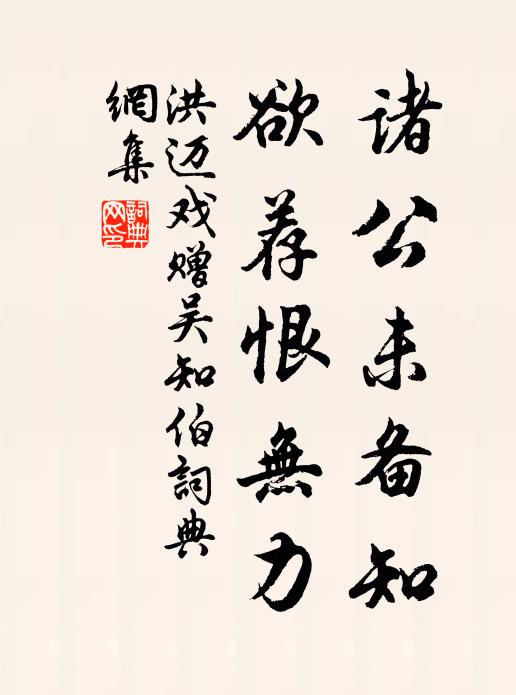 诸公未备知
欲荐恨無力
洪迈戏赠吴知伯詞典
網集
詞典
网印